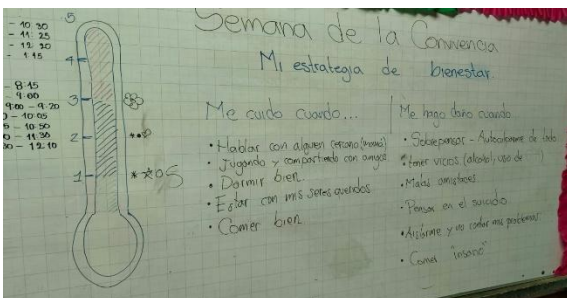 - 10 30
- 11: 25
- 12 20
- 1:45
- 8:45
- 9:00
9:00 - 9:20
- 10:05
- 10:50
- 11:30
- 12:10
5
4
3
2
1
Semana de la
Mi estrategia de bienestar
Me cuido cuando...
• Hablar con alguien cercano
• Jugando y compartiendo con amigos
• Dormir bien
• Estar con mis seres queridos
• Comer bien
Me hago daño cuando
• Sobrepensar - de todo
• tener vicios (alcohol, uso de
• Malas amistades
• Pensar en el suicidio
• Aislarme y no contar mis problemas
• Comer "insano"